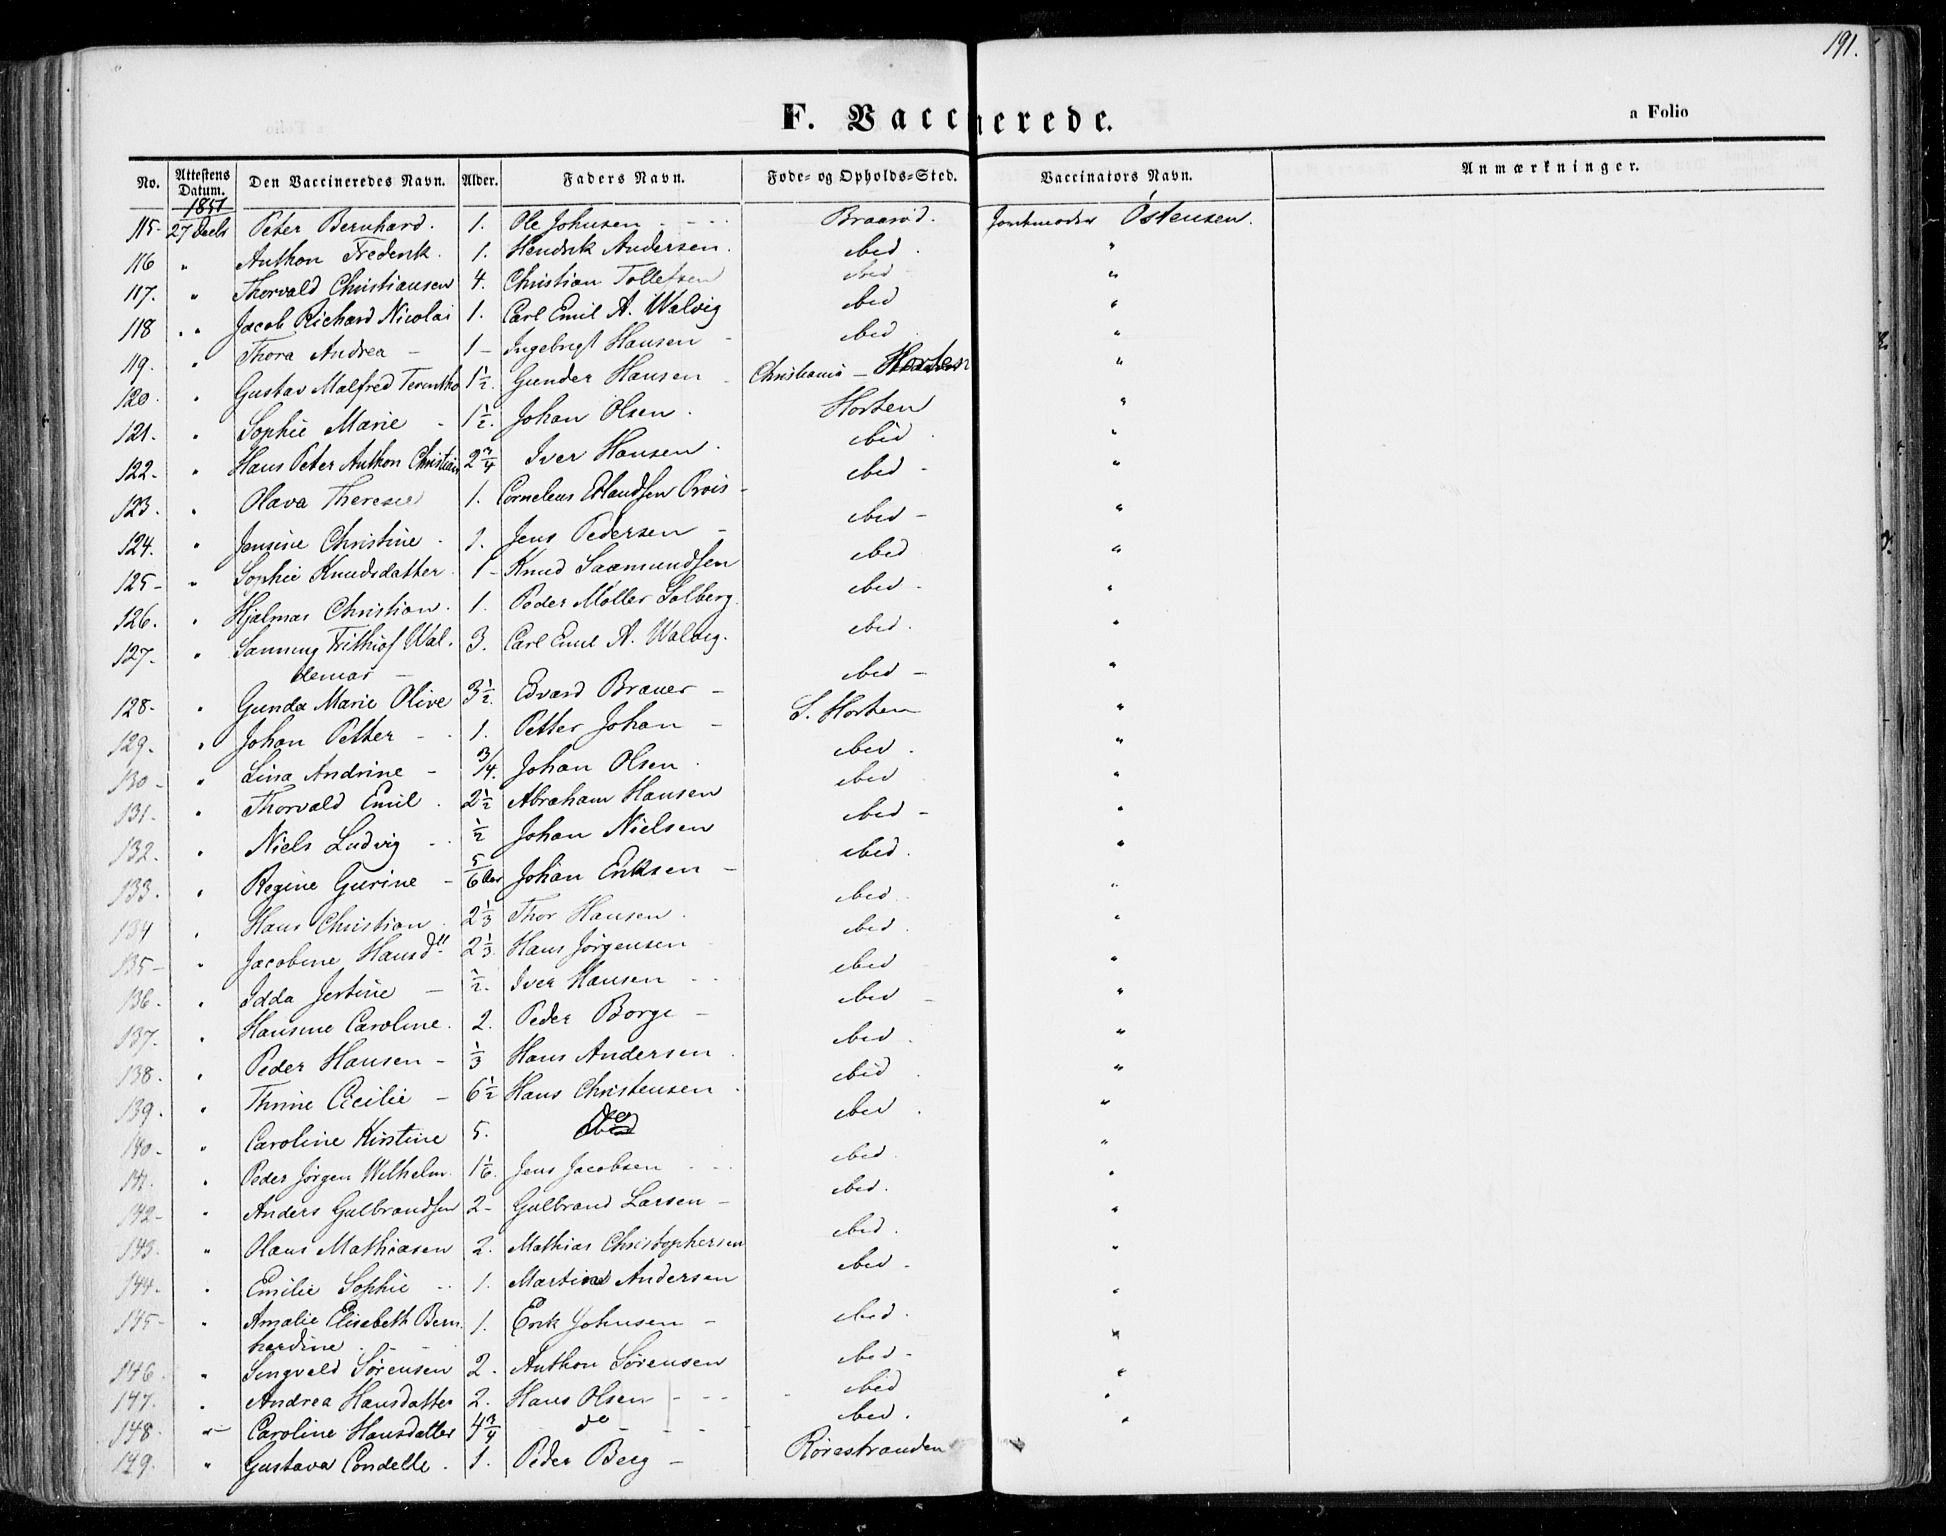 191.
F. Vaccinerede.
a Folio
No. Attestens Datum. Den Vaccineredes Navn. Alder. Faders Navn. Føde- og Opholds-Sted. Vaccinators Navn. Anmærkninger.
1851
115- 27 Decbr Peter Bernhard. 1. Ole Johnsen - - - Braarød. Jordemoder Østensen.
116 " Anthon Frederik. 1. Hendrik Andersen. ibid. "
117. " Thorvald Christiansen 4. Christian Tollefsen ibid - "
118 " Jacob Richard Nicolai 1. Carl Emil A. Walvig ibid "
119. " Thora Andrea - 1- Ingebrigt Hansen - ibid "
120. " Gustav Malfred 1 1/2. Gunder Hansen - Christiania - Horten "
121. " Sophie Marie - 1 1/2. Johan Olsen. Horten "
122- " Hans Peter Anthon Christian 2 3/4 Iver Hansen. ibid. "
123. " Olava Therese 1. Cornelius Erlandsen - ibid - "
124. " Jensine Christine - 1. Jens Pedersen - ibid - "
125- " Sophie Knudsdatter. 1- Knud Saamundsen ibid "
126. " Hjalmar Christian. 1. Peder Møller Solberg. ibid - "
127- " Frithiof Wal- 3. Carl Emil A. Walvig. ibid. "
demar -
128- " Gunda Marie Olive 3 1/2. Edvard Brauer - ibid - "
129- " Johan Petter - - 1. Petter Johan - S. Horten "
130- " Lina Andrine - 3/4. Johan Olsen. ibid. "
131- " Thorvald Emil. 2 1/2 Abraham Hansen ibid "
132. " Niels Ludvig - - 1/2 Johan Nielsen ibid - "
133. " Regine Gurine - 5/6 Aar Johan Eriksen - ibid. "
134 " Hans Christian. 2 1/3 Thor Hansen. ibid. "
135- " Jacobine Hansd. 2 1/3. Hans Jørgensen ibid. "
136. " Idda Jertine - 1/2. Iver Hansen - - ibid "
137. " Hansine Caroline. 2. Peder Borge - ibid - "
138. " Peder Hansen - 1/3 Hans Andersen. ibid. "
139. " Thrine Cicilie - 6 1/2 Hans Christensen. ibid. "
140- " Caroline Kirstine 5. do ibid. "
141. " Peder Jørgen Wilhelm. 1 1/6. Jens Jacobsen - - - ibid. "
142- " Anders Gulbrandsen 2- Gulbrand Larsen - ibid. "
143. " Olaus Mathiasen 2. Mathias Christophersen ibid. "
144. " Emilie Sophie - - 1. Martinus Andersen ibid - "
145- " Amalie Elisabeth Bern- 1. Erik Johnsen - ibid. "
hardine - -
146. " Syngvald Sørensen 2. Anthon Sørensen ibid - "
147. " Andrea Hansdatter 2. Hans Olsen - - - ibid "
148. " Caroline Hansdatter 4 3/4 do - ibid. "
149. " Gustava Condelle. 1. Peder Berg - Rørestranden "